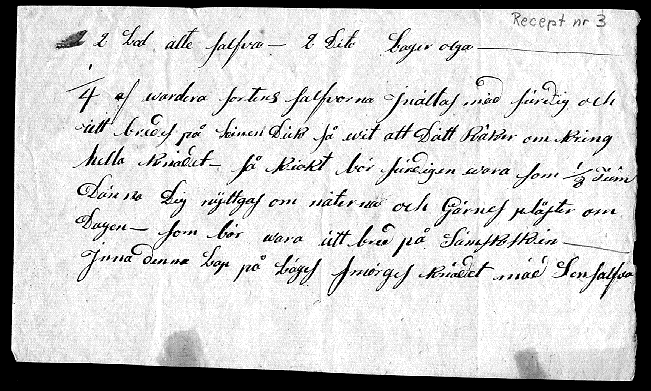 Recept nr 3
2 Lod alte salfva — 2 Dito Bager olga —
1/4 af wardera sortens salfvorna smältas med surdig och
utt bredes på Linen Duk så wit att Dätt Räker om kring
hella knädet — så tiokt bör surdigen wara som 1/2 Tum
Dänna Dig nyttgas om näterna och Gärnes plåster om
Dagen — som bör wara utt bred på Sämskskin —
Innä denna Lap på Läges smörges knädet mäd Lensalfva